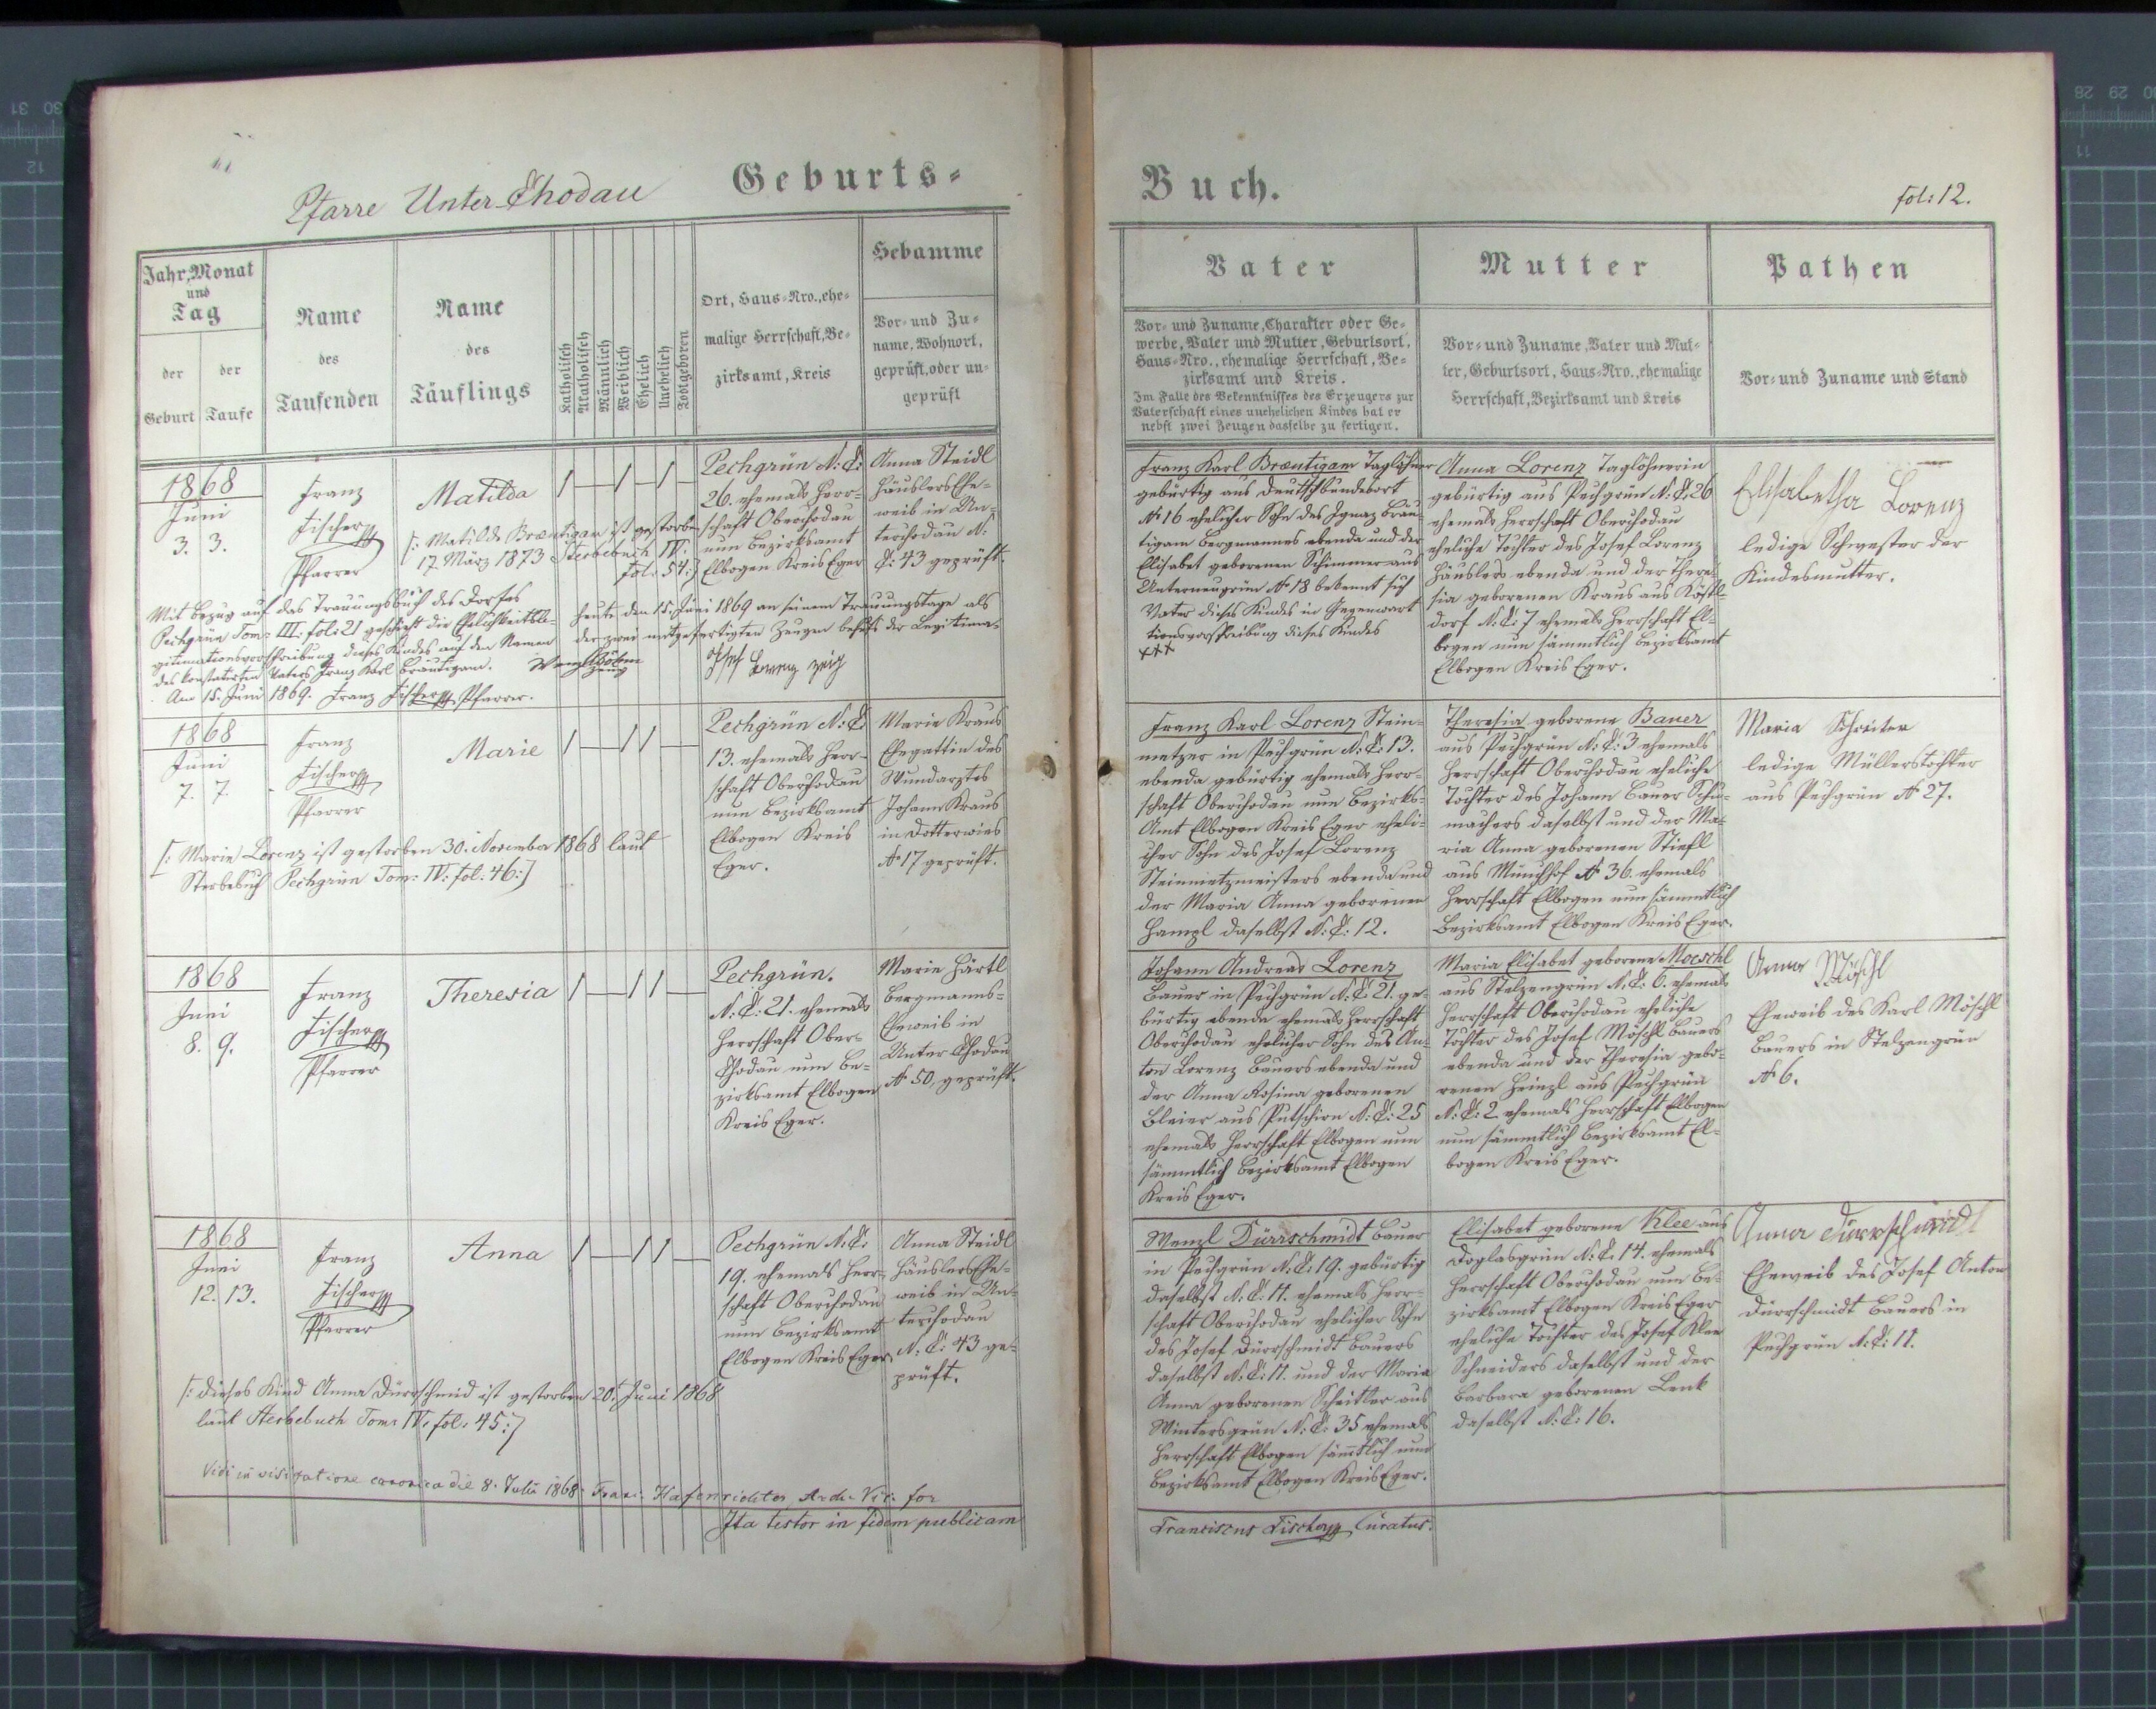 Pfarre Unter-Chodau
Geburts-
Buch.
fol: 12.
Jahr, Monat
und
Tag
der
Geburt
der
Taufe
Name
des
Taufenden
Name
des
Täuflings
Katholisch
Akatholisch
Männlich
Weiblich
Ehelich
Unehelich
Todtgeboren
Ort, Haus-Nro., ehe-
malige Herrschaft, Be-
zirksamt, Kreis
Hebamme
Vor- und Zu-
name, Wohnort,
geprüft, oder un-
geprüft
Vater
Vor- und Zuname, Charakter oder Ge-
werbe, Vater und Mutter, Geburtsort,
Haus-Nro., ehemalige Herrschaft, Be-
zirksamt und Kreis.
Im Falle des Bekenntnisses des Erzeugers zur
Vaterschaft eines unehelichen Kindes hat er
nebst zwei Zeugen dasselbe zu fertigen.
Mutter
Vor- und Zuname, Vater und Mut-
ter, Geburtsort, Haus-Nro., ehemalige
Herrschaft, Bezirksamt und Kreis
Pathen
Vor- und Zuname und Stand
1868
Juni
3. 3.
Franz
Fischer
Pfarrer
Matilda
[: Matilde Bräutigam ist gestorben
17 März 1873 Sterbebuch IV:
fol: 54:]
Pechgrün N: C:
26. ehemals Herr-
schaft Oberchodau
nun Bezirksamt
Elbogen Kreis Eger
Anna Steidl
Häuslers Ehe-
weib in Un-
terchodau N:
C: 43 geprüft.
Mit Bezug auf das Trauungsbuch des Dorfes
Pechgrün Tom: III: fol: 21 geschieht die Ehelichkeitsle-
gitimationsvorschreibung dieses Kindes auf den Namen
des konstatirten Vaters Franz Karl Bräutigam.
Am 15. Juni 1869. Franz Fischer Pfarrer.
heute den 15. Juni 1869 an seinem Trauungstage als
der zwei mitgefertigten Zeugen behufs der Legitima-
Wenzl Böhm
Zeug
Josef Lorenz zeig
Franz Karl Bræutigam Taglöhner
gebürtig aus Deutschbundebort
No 16 ehelicher Sohn des Ignaz Bräu-
tigam Bergmannes ebenda und der
Elisabet geborenen Schimmer aus
Unterneugrün No 18 bekennt sich
Vater dieses Kindes in Gegenwart
tionsvorschreibung dieses Kindes
xxx
Anna Lorenz Taglöhnerin
gebürtig aus Pechgrün N: C: 26
ehemals Herrschaft Oberchodau
eheliche Tochter des Josef Lorenz
Häuslers ebenda und der There-
sia geborenen Kraus aus Köstl-
dorf N: C: 7 ehemals Herrschaft El-
bogen nun sämmtlich Bezirksamt
Elbogen Kreis Eger.
Elisabetha Lorenz
ledige Schwester der
Kindesmutter.
1868
Juni
7. 7.
Franz
Fischer
Pfarrer
Marie
[: Marie Lorenz ist gestorben 30. November 1868 laut
Sterbebuch Pechgrün Tom: IV: fol: 46:]
Pechgrün N: C:
13. ehemals Herr-
schaft Oberchodau
nun Bezirksamt
Elbogen Kreis
Eger.
Marie Kraus
Ehegattin des
Wundarztes
Johann Kraus
in Dotterwies
No 17 geprüft.
Franz Karl Lorenz Stein-
metzer in Pechgrün N: C: 13.
ebenda gebürtig ehemals Herr-
schaft Oberchodau nun Bezirks-
Amt Elbogen Kreis Eger eheli-
cher Sohn des Josef Lorenz
Steinmetzmeisters ebenda und
der Maria Anna geborenen
Hampl daselbst N: C: 12.
Theresia geborene Bauer
aus Pechgrün N: C: 3 ehemals
Herrschaft Oberchodau eheliche
Tochter des Johann Bauer Schu-
machers daselbst und der Ma-
ria Anna geborenen Stiefl
aus Münchhof No 36. ehemals
Herrschaft Elbogen nun sämmtlich
Bezirksamt Elbogen Kreis Eger.
Maria Schreiter
ledige Müllerstochter
aus Pechgrün No 27.
1868
Juni
8. 9.
Franz
Fischer
Pfarrer
Theresia
Pechgrün.
N: C: 21. ehemals
Herrschaft Ober-
Chodau nun Be-
zirksamt Elbogen
Kreis Eger.
Marie Härtl
Bergmanns-
Eheweib in
Unter Chodau
No 50, geprüft.
Johann Andreas Lorenz
Bauer in Pechgrün N: C: 21. ge-
bürtig ebenda ehemals Herrschaft
Oberchodau ehelicher Sohn des An-
ton Lorenz Bauers ebenda und
der Anna Rosina geborenen
Bleier aus Putschirn N: C: 25
ehemals Herrschaft Elbogen nun
sämmtlich Bezirksamt Elbogen
Kreis Eger.
Maria Elisabet geborene Moeschl
aus Stelzengrün N: C: 6. ehemals
Herrschaft Oberchodau eheliche
Tochter des Josef Möschl Bauers
ebenda und der Theresia gebo-
renen Heinzl aus Pechgrün
N: C: 2 ehemals Herrschaft Elbogen
nun sämmtlich Bezirksamt El-
bogen Kreis Eger.
Anna Möschl
Eheweib des Karl Möschl
Bauers in Stelzengrün
No 6.
1868
Juni
12. 13.
Franz
Fischer
Pfarrer
Anna
[: Dieses Kind Anna Dürrschmid ist gestorben 20. Juni 1868
laut Sterbebuch Tom: IV: fol: 45:]
Pechgrün N: C:
19. ehemals Herr-
schaft Oberchodau
nun Bezirksamt
Elbogen Kreis Eger
Anna Steidl
Häuslers Ehe-
weib in Un-
terchodau
N: C: 43 ge-
prüft.
Wenzl Dürrschmidt Bauer
in Pechgrün N: C: 19. gebürtig
daselbst N: C: 11. ehemals Herr-
schaft Oberchodau ehelicher Sohn
des Josef Dürrschmidt Bauers
daselbst N: C: 11. und der Maria
Anna geborenen Scheitler aus
Wintersgrün N: C: 35 ehemals
Herrschaft Elbogen sämtlich nun
Bezirksamt Elbogen Kreis Eger.
Elisabet geborene Klee aus
Doglasgrün N: C: 14. ehemals
Herrschaft Oberchodau nun Be-
zirksamt Elbogen Kreis Eger
eheliche Tochter des Josef Klee
Schneiders daselbst und der
Barbara geborenen Lenk
daselbst N: C: 16.
Anna Dürrschmidt
Eheweib des Josef Anton
Dürrschmidt Bauers in
Pechgrün N: C: 11.
Vidi in visitatione canonica die 8. Julii 1868. Franc. Hafenrichter, Archi Vic. for
Ita testor in fidem publicam
Franciscus Fischer Curatus.